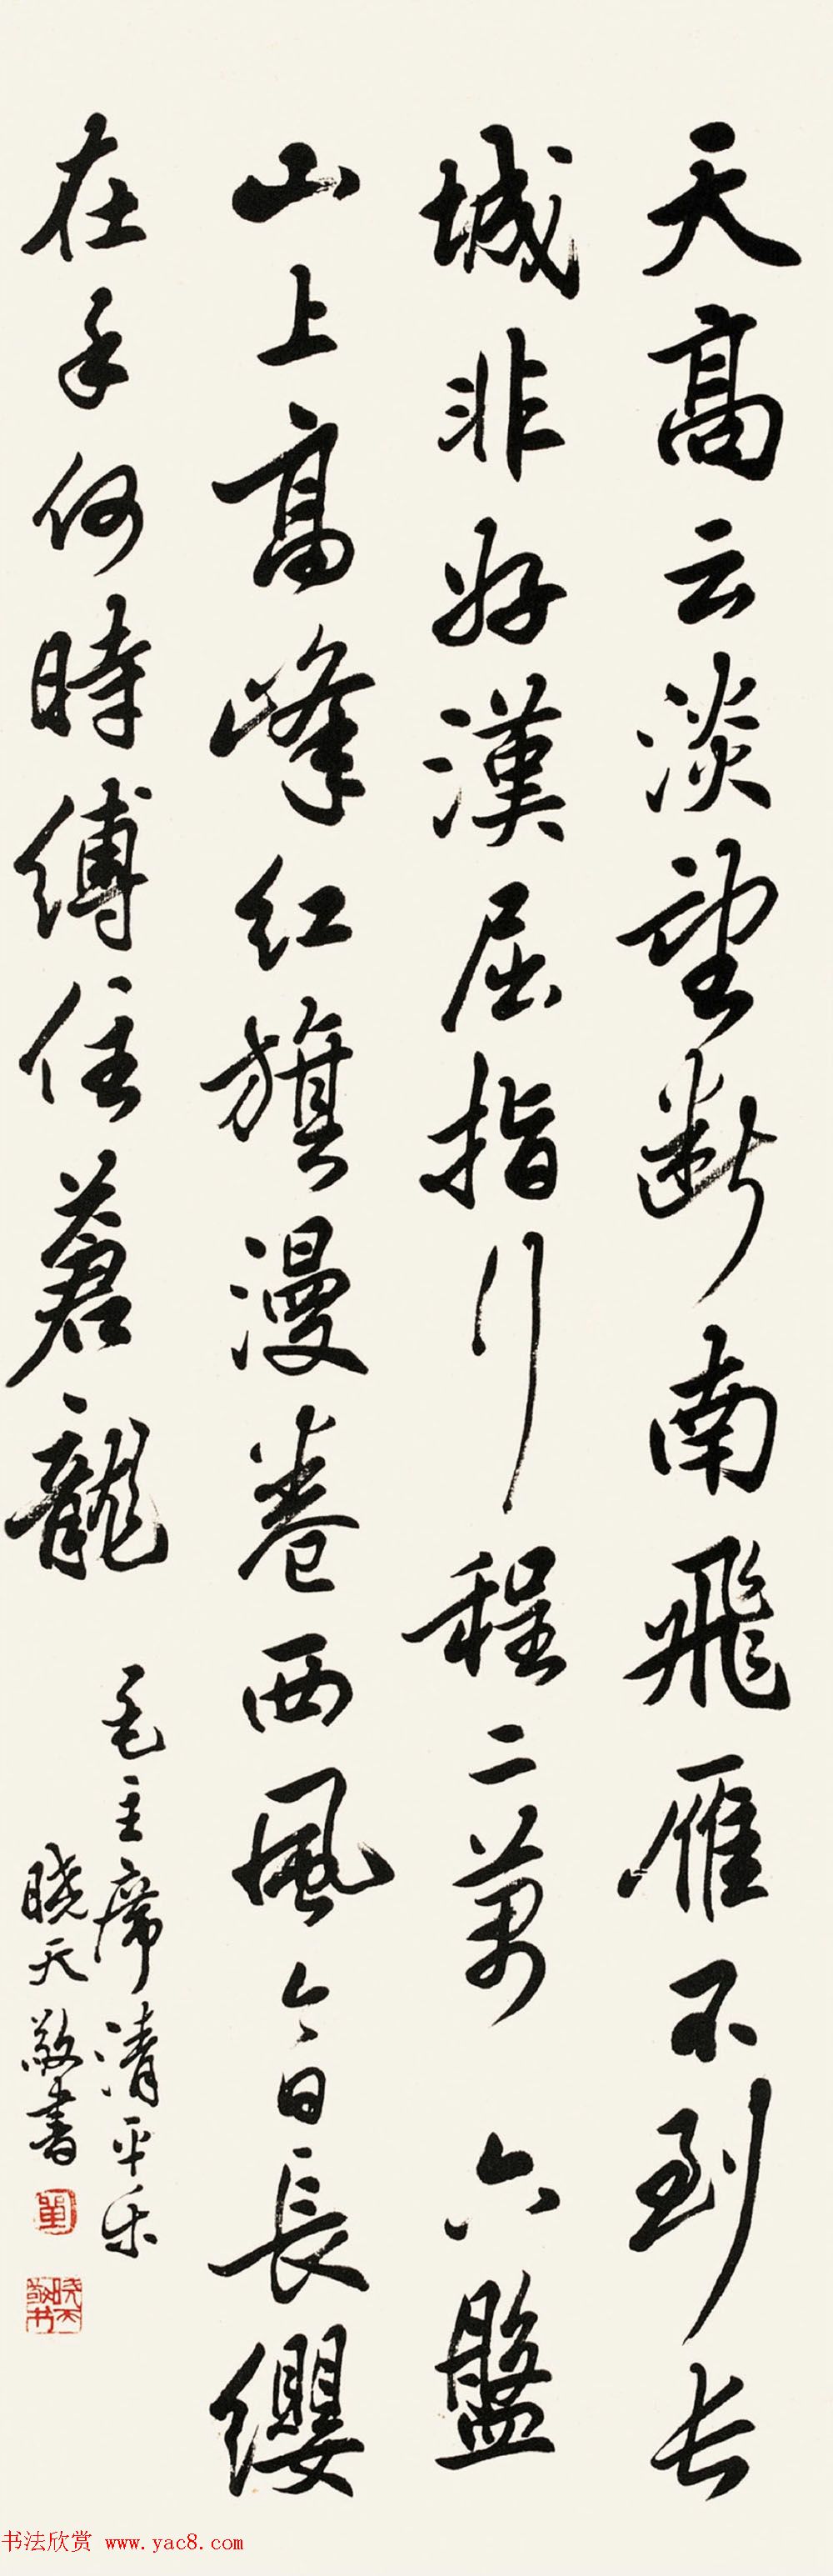 天高云淡望断南飛雁不到长
城非好漢屈指行程二萬六盤
山上高峰红旗漫卷西風今日長纓
在手何時缚住蒼龍
毛主席清平乐
晓天敬書
晓天敬书
书法欣赏 www.yac8.com